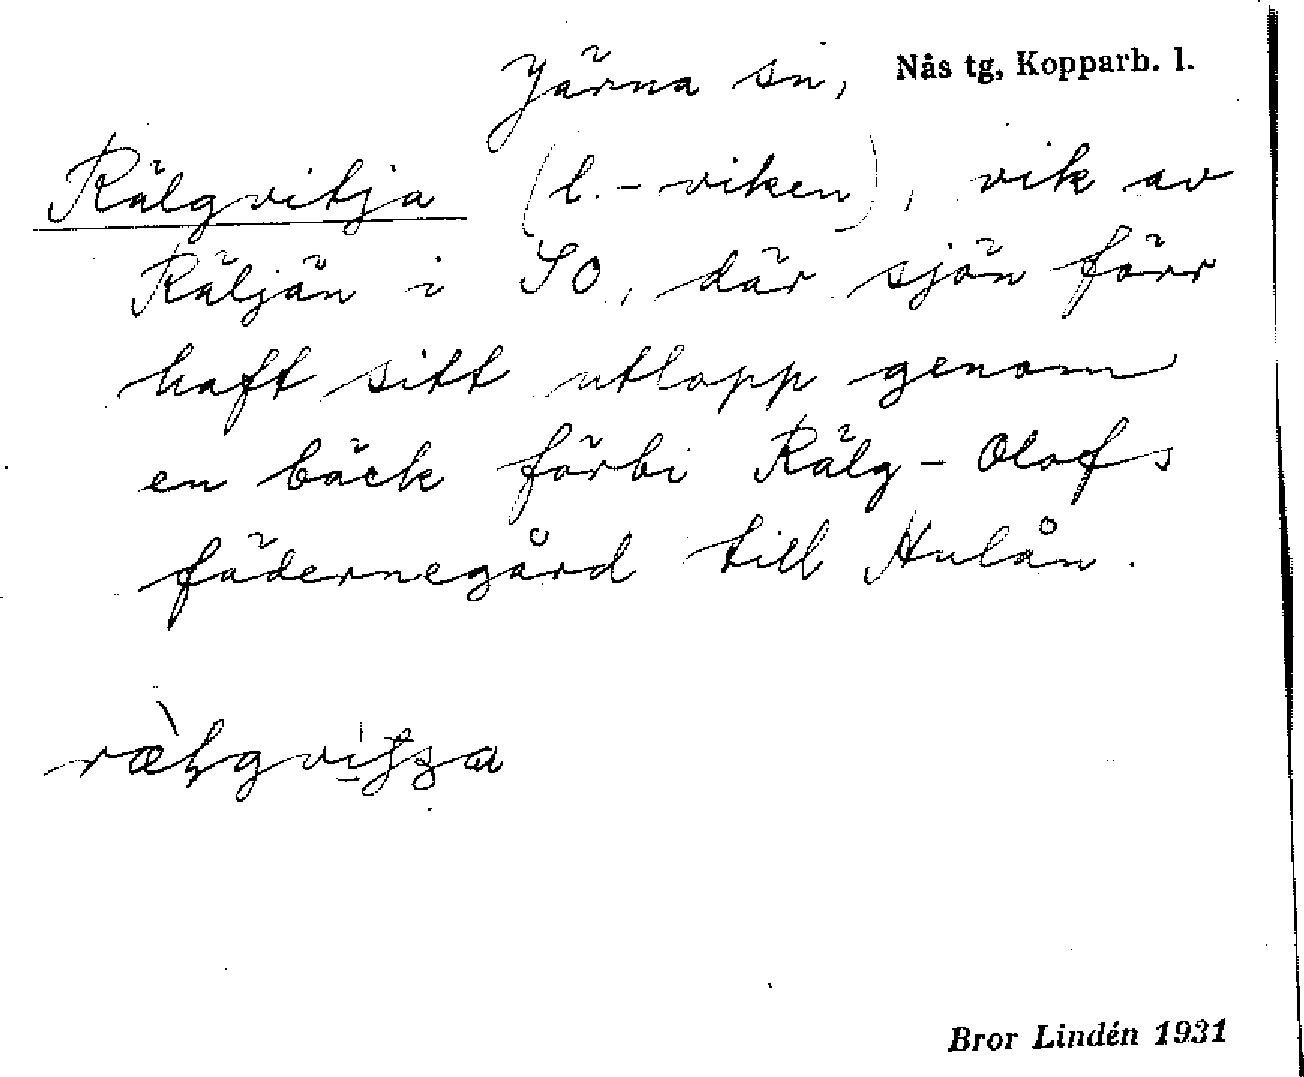 Järna sn, Nås tg, Kopparb. l.
Rälgvitja (l. - viken), vik av
Räljän i SO, där sjön förr
haft sitt utlopp genom
en bäck förbi Rälg - Olofs
fädernegård till Hulån.
Bror Lindén 1931